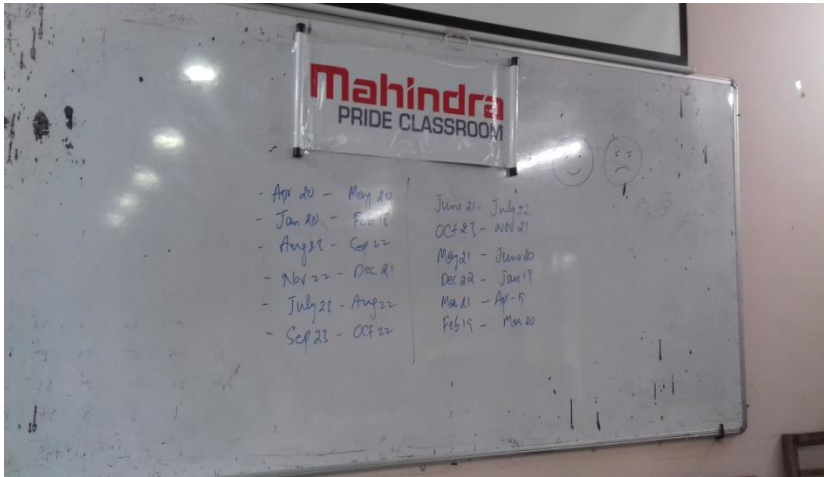 Mahindra
PRIDE CLASSROOM
- Apr 20 - May 20
- Jan 20 - Feb 18
- Aug 23 - Sep 22
- Nov 22 - Dec 21
- July 23 - Aug 22
- Sep 23 - Oct 22
June 21 - July 22
Oct 23 - Nov 21
May 21 - June 20
Dec 22 - Jan 19
Mar 21 - Apr - 19
Feb 19 - Mar 20